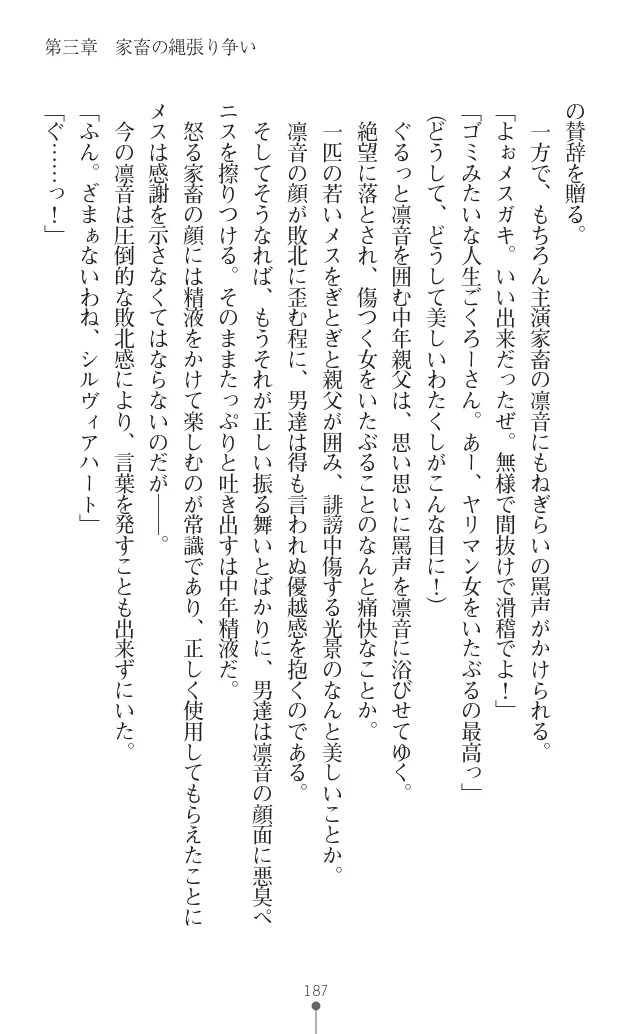 第三章　家畜の縄張り争い
の賛辞を贈る。
一方で、もちろん主演家畜の凛音にもねぎらいの罵声がかけられる。
「よぉメスガキ。いい出来だったぜ。無様で間抜けで滑稽でよ！」
「ゴミみたいな人生ごくろーさん。あー、ヤリマン女をいたぶるの最高っ」
（どうして、どうして美しいわたくしがこんな目に！）
ぐるっと凛音を囲む中年親父は、思い思いに罵声を凛音に浴びせてゆく。
絶望に落とされ、傷つく女をいたぶることのなんと痛快なことか。
一匹の若いメスをぎとぎと親父が囲み、誹謗中傷する光景のなんと美しいことか。
凛音の顔が敗北に歪む程に、男達は得も言われぬ優越感を抱くのである。
そしてそうなれば、もうそれが正しい振る舞いとばかりに、男達は凛音の顔面に悪臭ペ
ニスを擦りつける。そのままたっぷりと吐き出すは中年精液だ。
怒る家畜の顔には精液をかけて楽しむのが常識であり、正しく使用してもらえたことに
メスは感謝を示さなくてはならないのだが――。
今の凛音は圧倒的な敗北感により、言葉を発すことも出来ずにいた。
「ふん。ざまぁないわね、シルヴィアハート」
「ぐ……っ！」
187